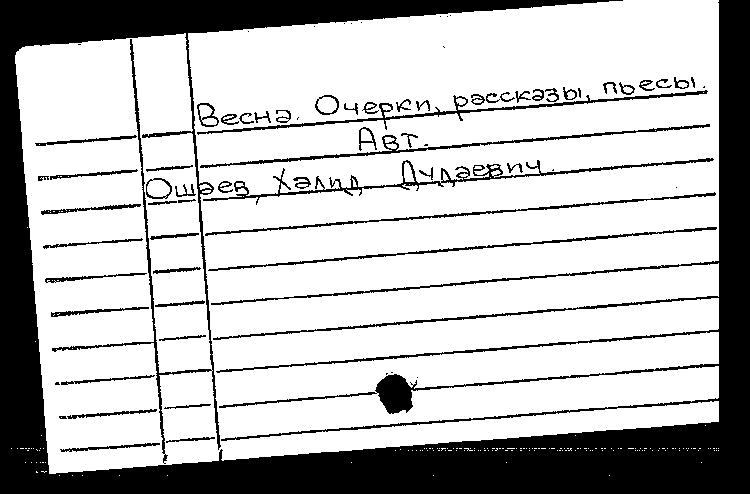 Весна. Очерки, рассказы, пьесы.
Авт.
Ошаев, Халид Дудаевич.